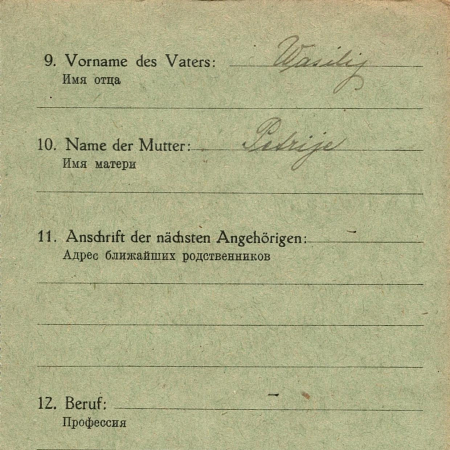 9. Vorname des Vaters: Wasilij
Имя отца
10. Name der Mutter: Petrije
Имя матери
11. Anschrift der nächsten Angehörigen: –
Адрес ближайших родственников
12. Beruf: –
Профессия